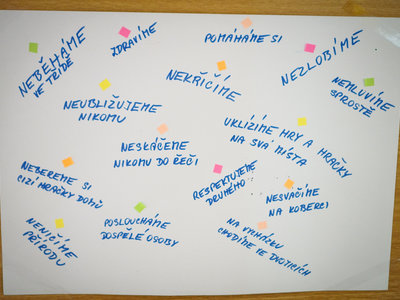 NEBĚHÁME
VE TŘÍDĚ
ZDRAVÍME
POMÁHÁME SI
NEZLOBÍME
NEMLUVÍME
SPROSTĚ
NEKŘIČÍME
NEUBLIŽUJEME
NIKOMU
NESKÁČEME
NIKOMU DO ŘEČI
UKLÍZÍME HRY A HRAČKY
NA SVÁ MÍSTA
NEBEREME SI
CIZÍ HRAČKY DOMŮ
RESPEKTUJEME
DRUHÉHO
NESVAČÍME
NA KOBERCI
NENIČÍME
PŘÍRODU
POSLOUCHÁME
DOSPĚLÉ OSOBY
NA VYCHÁZKU
CHODÍME VE DVOJICÍCH